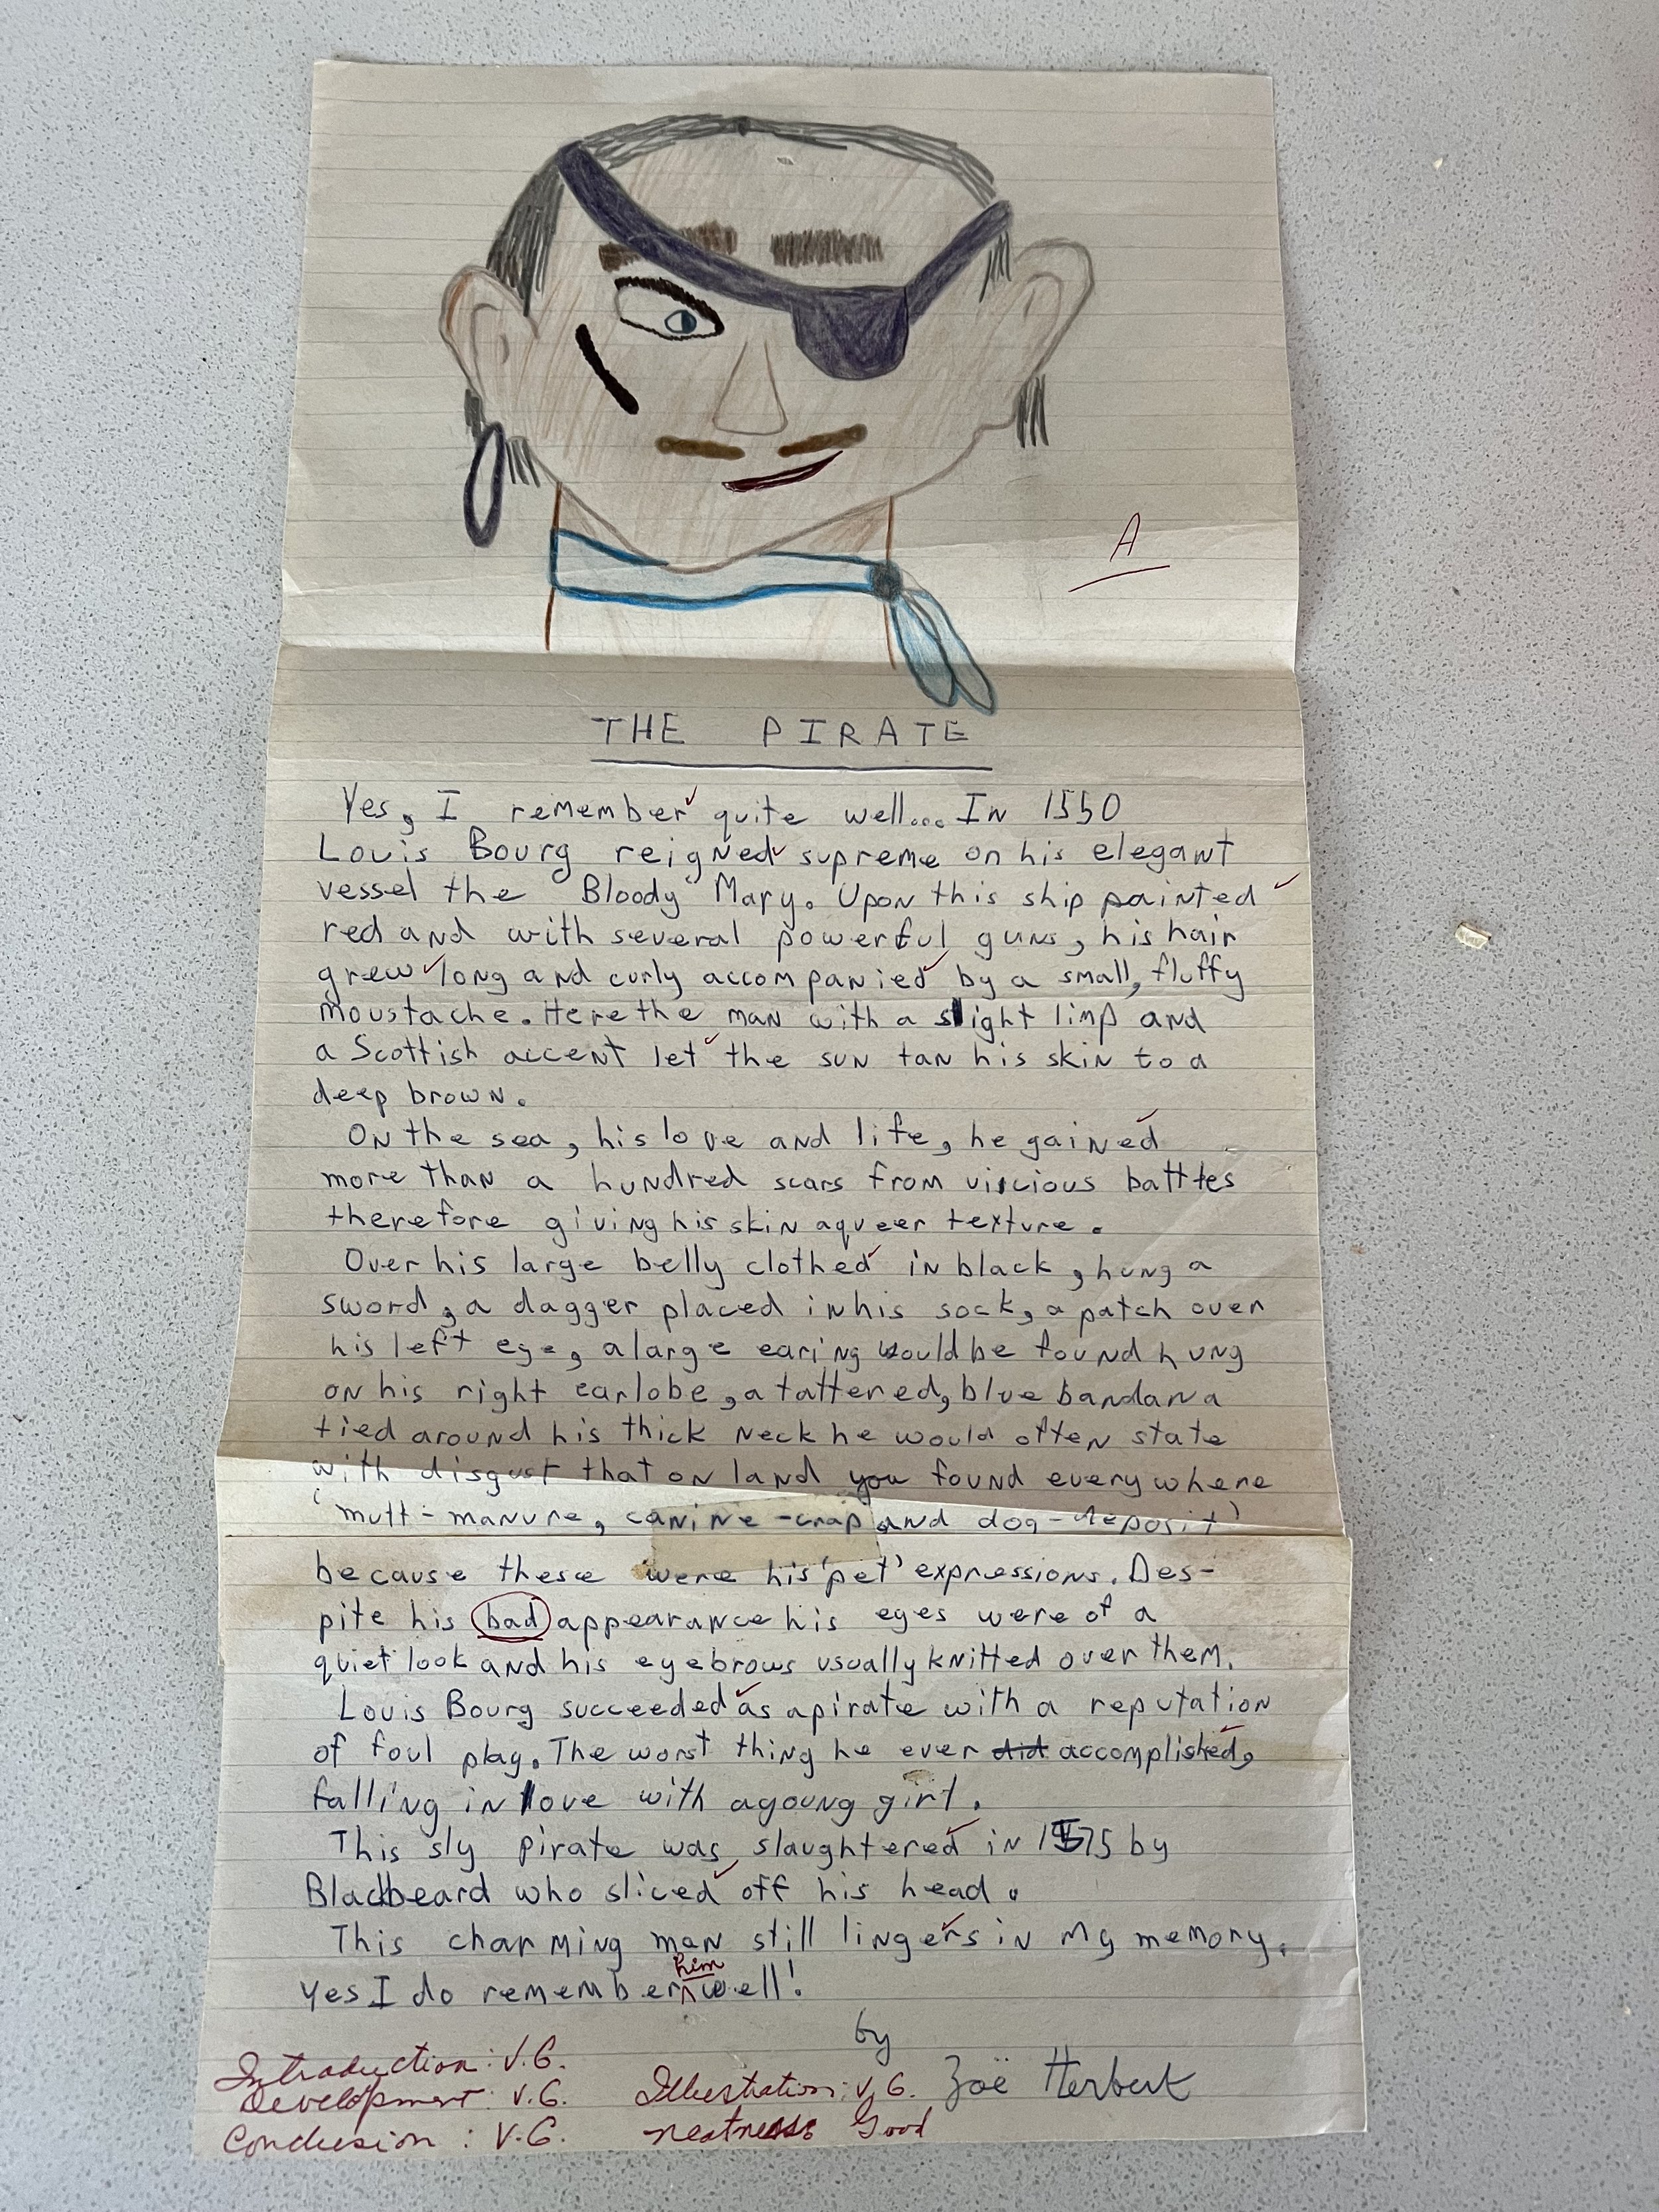 A
THE PIRATE
Yes, I remember quite well... In 1550
Louis Bourg reigned supreme on his elegant
vessel the "Bloody" Mary. Upon this ship painted
red and with several powerful guns, his hair
grew long and curly accompanied by a small, fluffy
moustache. Here the man with a slight limp and
a Scottish accent let the sun tan his skin to a
deep brown.
On the sea, his love and life, he gained
more than a hundred scars from viscious batttes
therefore giving his skin a queer texture.
Over his large belly clothed in black, hung a
sword, a dagger placed in his sock, a patch over
his left eye, a large earing would be found hung
on his right earlobe, a tattered, blue bandana
tied around his thick neck he would often state
with disgust that on land you found everywhere
'mutt-manure, canine-crap and dog-deposit'
because these were his 'pet' expressions. Des-
pite his bad appearance his eyes were of a
quiet look and his eyebrows usually knitted over them.
Louis Bourg succeeded as a pirate with a reputation
of foul play. The worst thing he ever did accomplished,
falling in love with a young girl.
This sly pirate was slaughtered in 1575 by
Blackbeard who sliced off his head.
This charming man still lingers in my memory.
Yes I do remember him well!
by
Zoë Herbert
Introduction: V.G.
Development: V.G.
Conclusion: V.G.
Illustration: V.G.
Neatness: Good